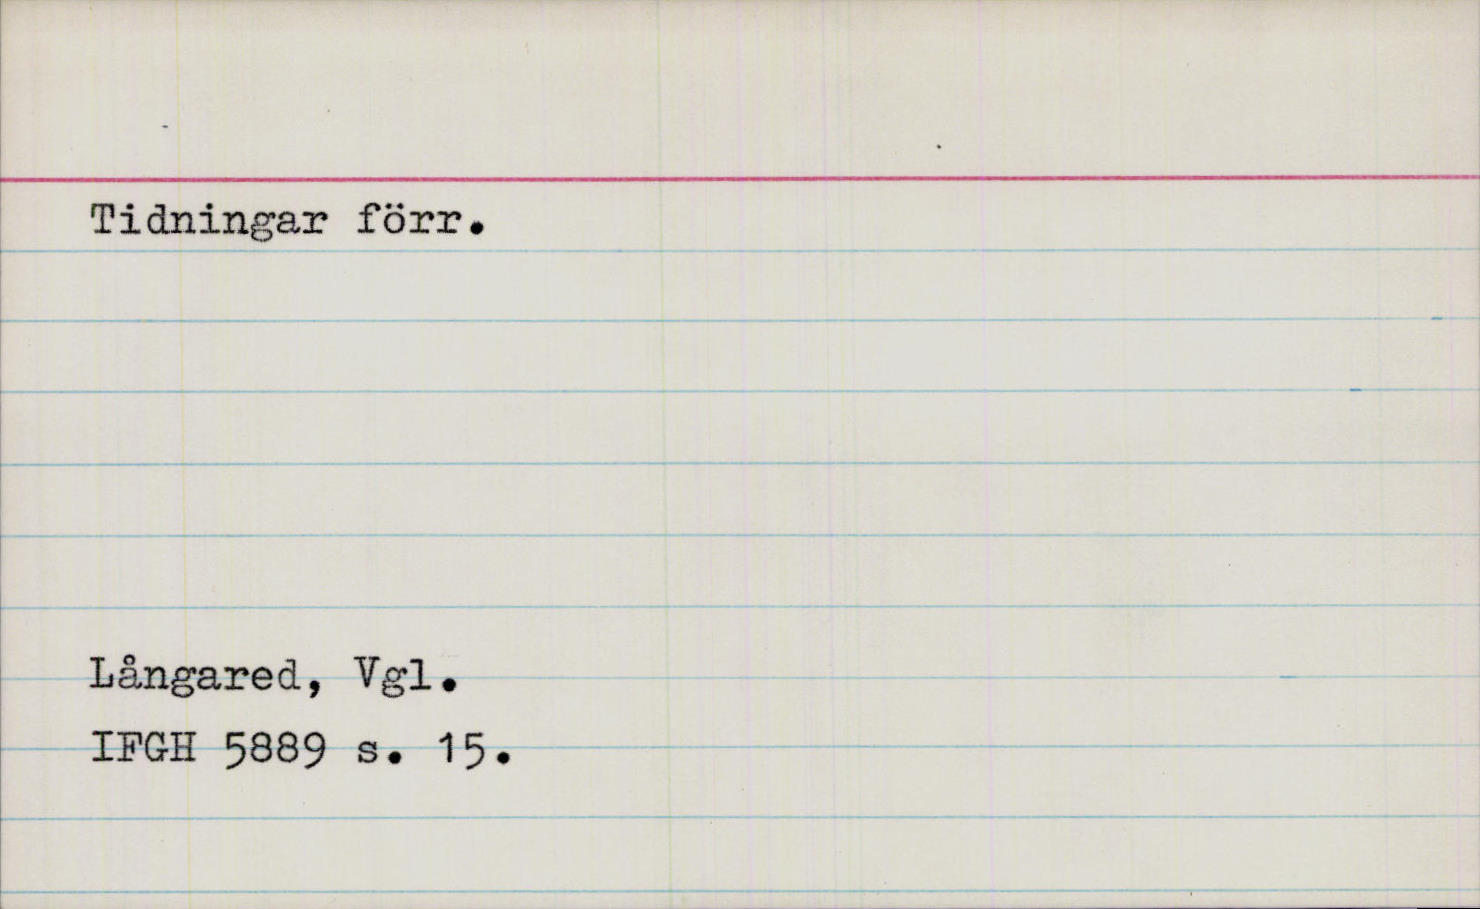 Tidningar förr.
Långared, Vgl.
IFGH 5889 s. 15.